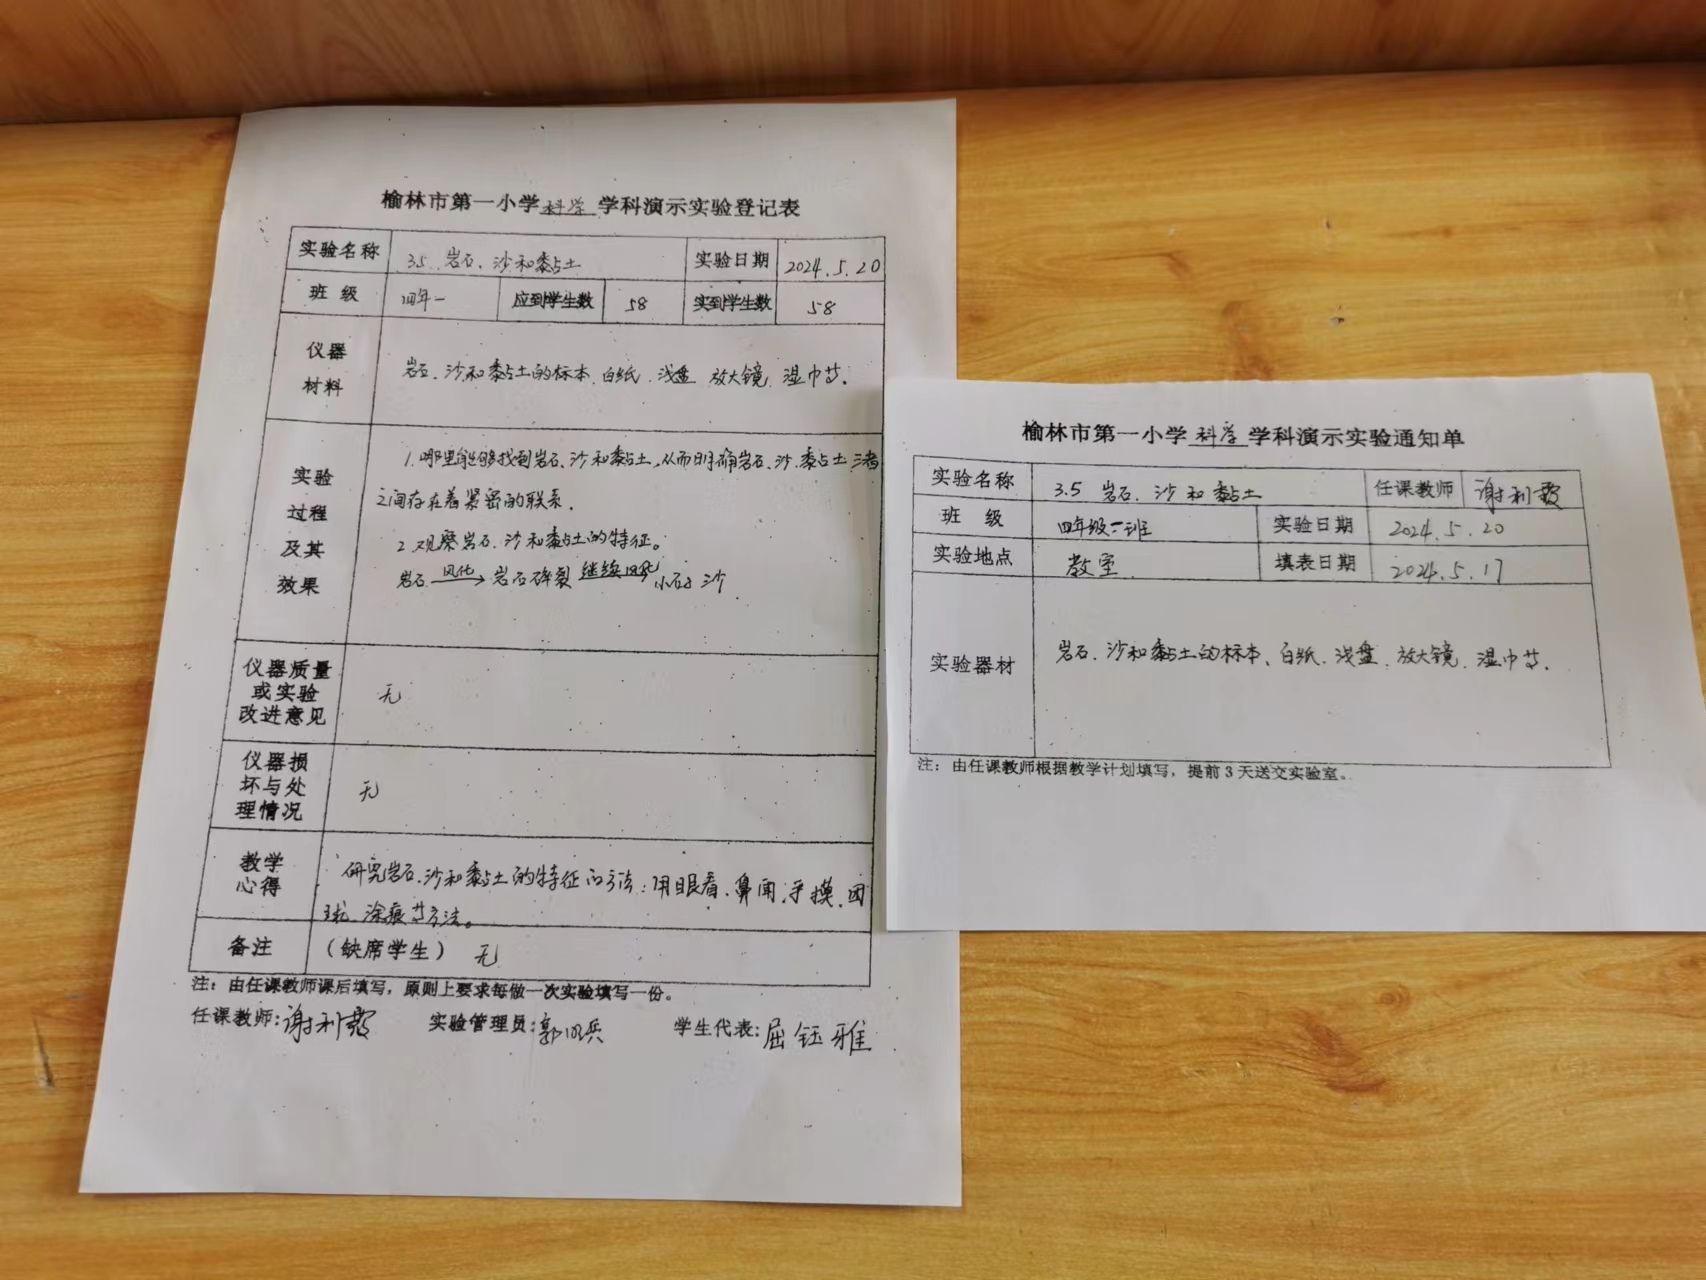 榆林市第一小学科学学科演示实验登记表
实验名称 3.5 岩石、沙和黏土 实验日期 2024.5.20
班 级 四年一 应到学生数 58 实到学生数 58
仪器
材料
岩石、沙和黏土的标本、白纸、浅盘、放大镜、湿巾等。
实验
过程
及其
效果
1.哪里能够找到岩石、沙和黏土,从而明确岩石、沙、黏土三者
之间存在着紧密的联系。
2.观察岩石、沙和黏土的特征。
岩石 风化→ 岩石碎裂 继续风化 小石子 沙
仪器质量
或实验
改进意见
无
仪器损
坏与处
理情况
无
教学
心得
研究岩石、沙和黏土的特征的方法:用眼看、鼻闻、手摸、团
球、涂痕等方法。
备注 (缺席学生) 无
注:由任课教师课后填写,原则上要求每做一次实验填写一份。
任课教师:谢利 实验管理员:郭 兵 学生代表:屈钰雅
榆林市第一小学科学学科演示实验通知单
实验名称 3.5 岩石、沙和黏土 任课教师 谢利
班 级 四年级一班 实验日期 2024.5.20
实验地点 教室 填表日期 2024.5.17
实验器材 岩石、沙和黏土的标本、白纸、浅盘、放大镜、湿巾等。
注:由任课教师根据教学计划填写,提前3天送交实验室。